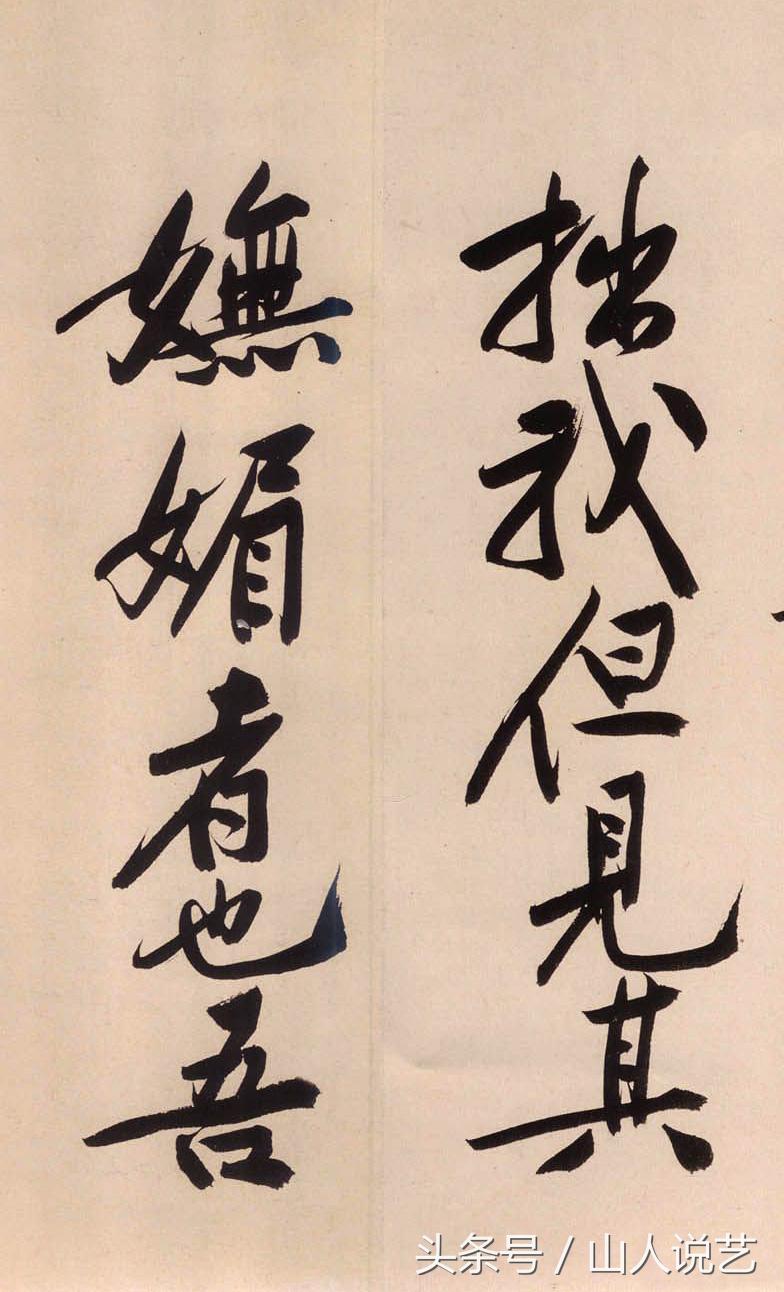 拙我但見其
嫵媚者也吾
头条号 / 山人说艺